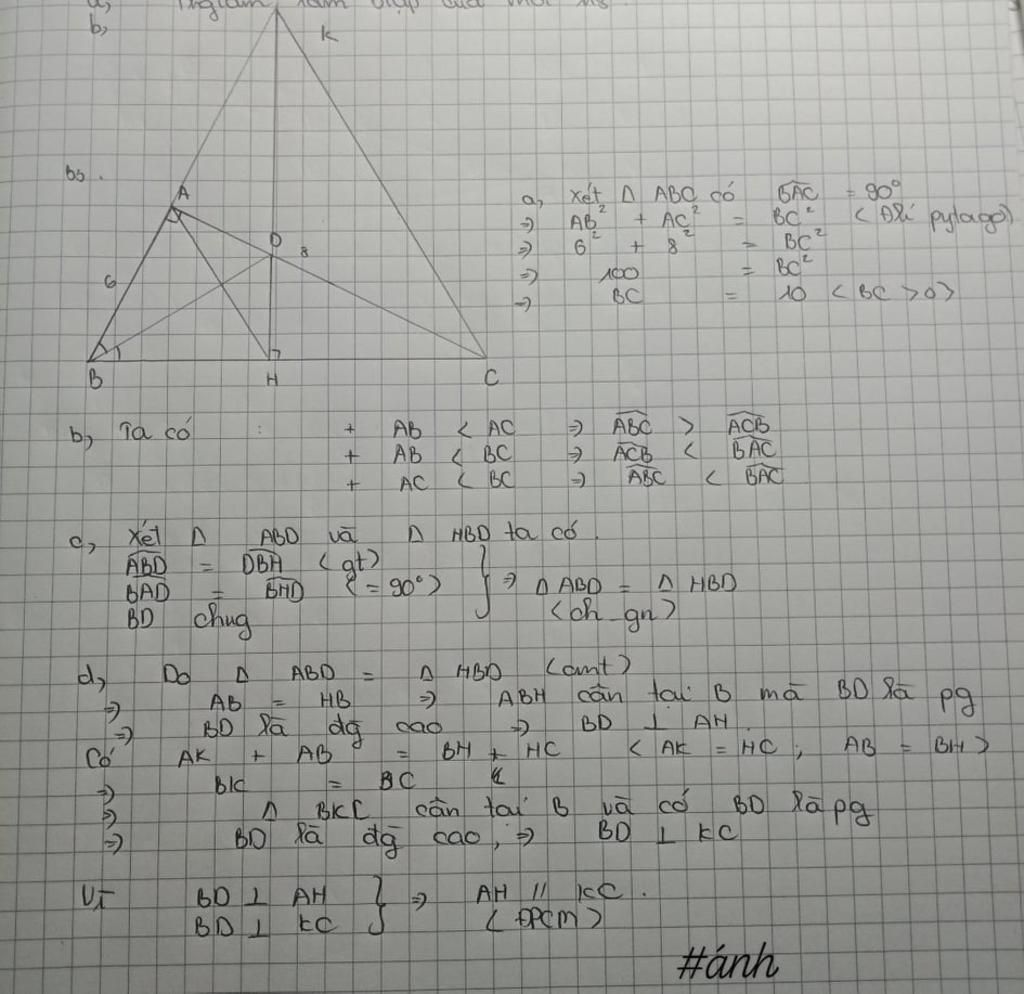 b,
K
b5.
A
D
8
6
B
H
C
a, xét Δ ABC có BAC = 90°
=> AB² + AC² = BC² < Đlí pytago>
=> 6² + 8² = BC²
=> 100 = BC²
=> BC = 10 < BC > 0 >
b, Ta có : + AB < AC => ABC > ACB
+ AB < BC => ACB < BAC
+ AC < BC => ABC < BAC
c, Xét Δ ABD và Δ HBD ta có
ABD = DBH < gt >
BAD = BHD < = 90° > } => Δ ABD = Δ HBD
BD chug < ch_gn >
d, Do Δ ABD = Δ HBD (cmt)
=> AB = HB => ABH cân tại B mà BD là pg
=> BD là đg cao => BD ⊥ AH.
Có AK + AB = BH + HC < AK = HC ; AB = BH >
=> BK = BC
=> Δ BKC cân tại B và có BD là pg
=> BD là đg cao, => BD ⊥ KC
Vì BD ⊥ AH } => AH // KC.
BD ⊥ KC < ĐPCM >
#ánh